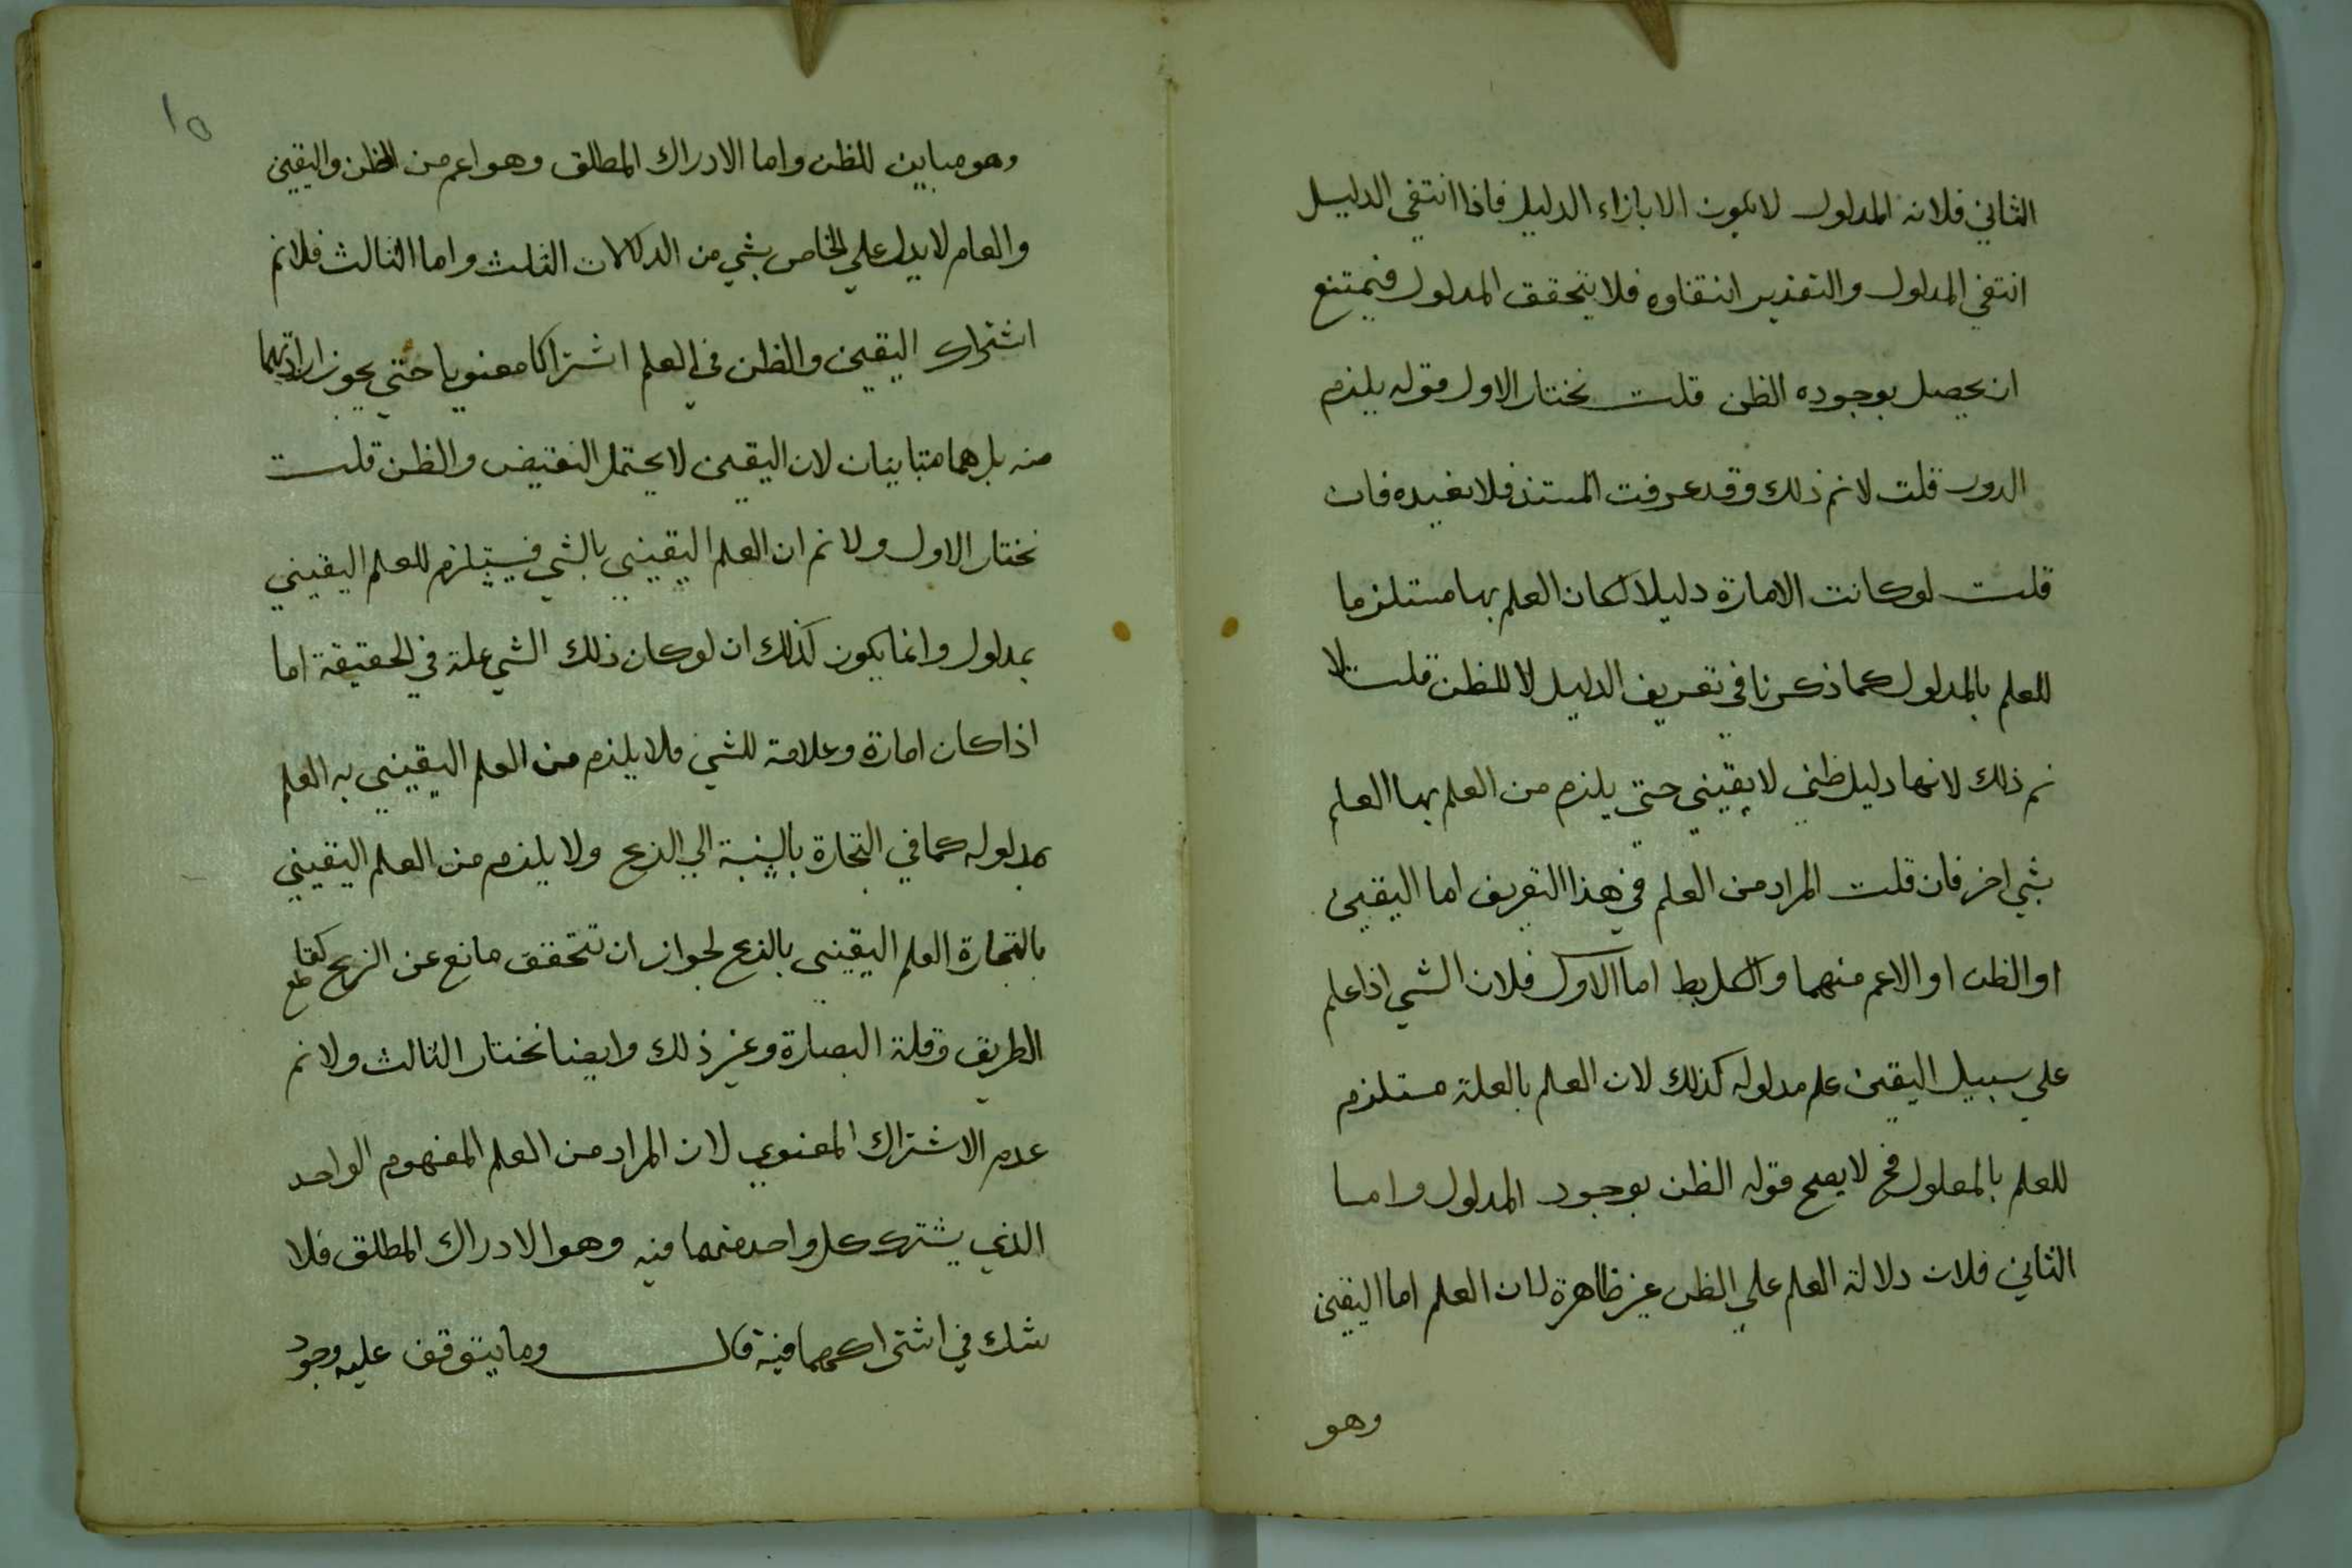 الثاني فلانه المدلول لا يكون الا بازاء الدليل فاذا انتفي الدليل
انتفي المدلول والتقدير انتفاوه فلا يتحقق المدلول فيمتنع
ان يحصل بوجوده الظن قلت نختار الاول قوله يلزم
الدور قلت لانم ذلك وقد عرفت المستند فلا نعيده فان
قلت لو كانت الامارة دليلا لكان العلم بها مستلزما
للعلم بالمدلول كما ذكرنا في تعريف الدليل لا للظن قلت لا
نم ذلك لانها دليل ظني لا يقيني حتي يلزم من العلم بها العلم
بشي اخر فان قلت المراد من العلم في هذا التعريف اما اليقين
او الظن او الاعم منهما والكل بط اما الاول فلان الشي اذا علم
علي سبيل اليقين علم مدلوله كذلك لان العلم بالعلة مستلزم
للعلم بالمعلول فح لا يصح قوله الظن بوجود المدلول واما
الثاني فلان دلالة العلم علي الظن غير ظاهرة لان العلم اما اليقين
وهو
١٥
وهو مباين للظن واما الادراك المطلق وهو اعم من الظن واليقين
والعام لا يدل علي الخاص بشي من الدلالات الثلث واما الثالث فلانم
اشتراك اليقين والظن في العلم اشتراكا معنويا حتي يجوز ارادتهما
منه بل هما متباينان لان اليقين لا يحتمل النقيض والظن قلت
نختار الاول ولا نم ان العلم اليقيني بالشي فيستلزم للعلم اليقيني
بمدلول وانما يكون كذلك ان لو كان ذلك الشي علة في الحقيقة اما
اذا كان امارة وعلامة للشي فلا يلزم من العلم اليقيني به العلم
بمدلوله كما في التجارة بالنسبة الي الربح ولا يلزم من العلم اليقيني
بالتجارة العلم اليقيني بالربح لجواز ان تتحقق مانع عن الربح كقاطع
الطريق وقلة البصارة وغير ذلك وايضا نختار الثالث ولا نم
عدم الاشتراك المعنوي لان المراد من العلم المفهوم الواحد
الذي يشترك كل واحد منهما فيه وهو الادراك المطلق فلا
شك في اشتراكهما فيه قال وما يتوقف عليه وجود